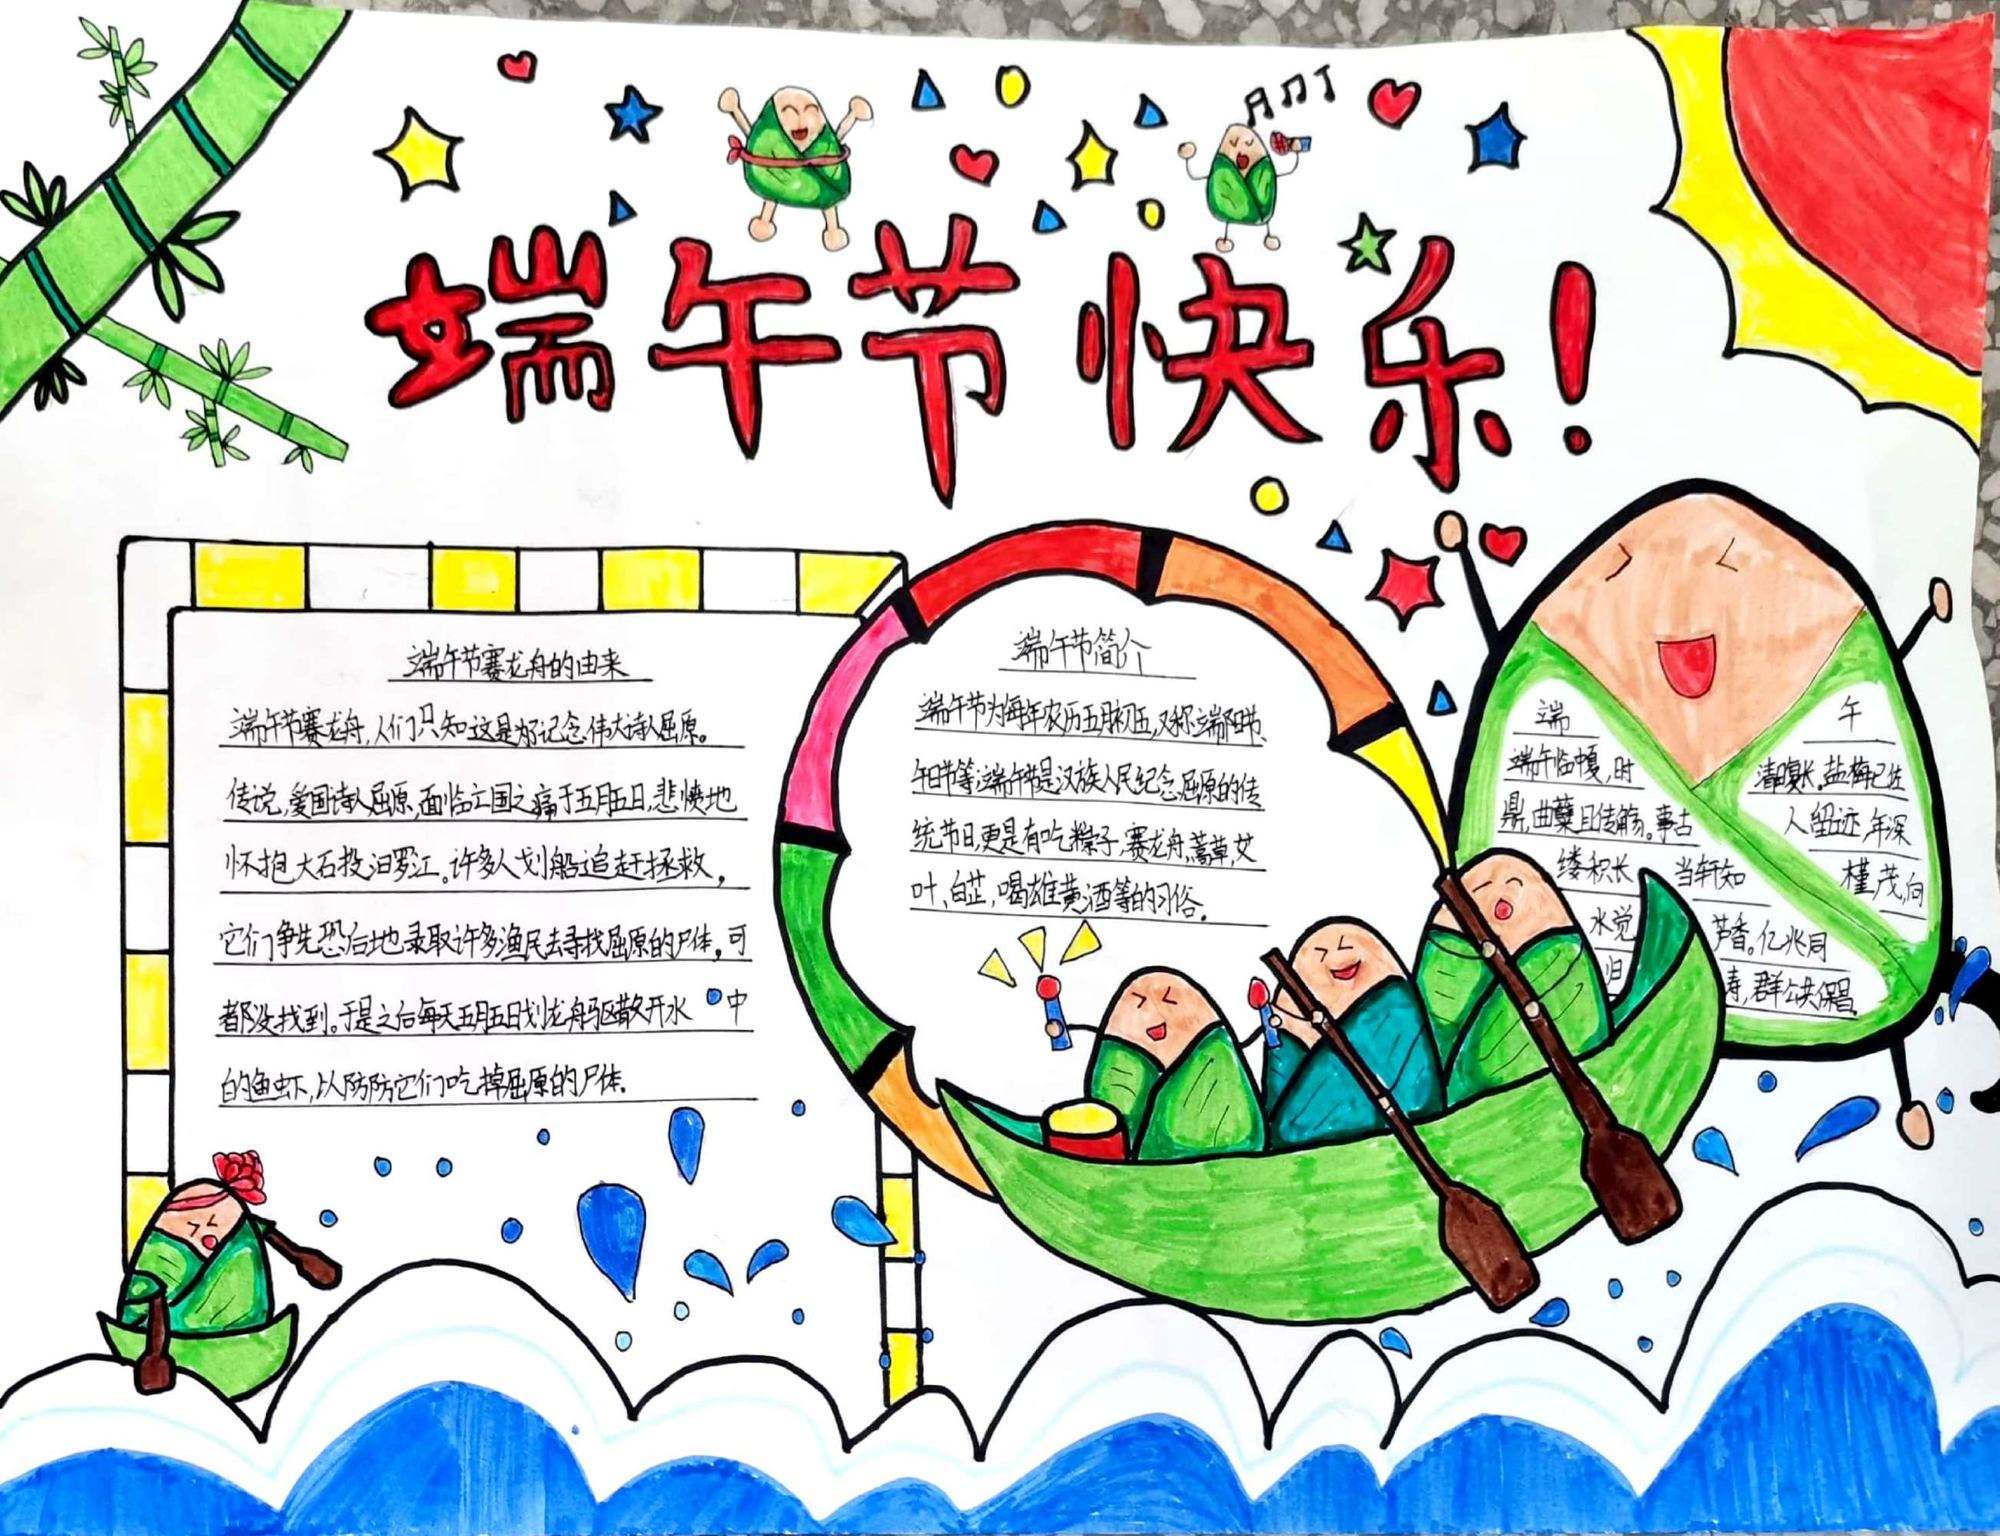 端午节快乐!
端午节赛龙舟的由来
端午节赛龙舟,人们只知这是为记念伟大诗人屈原。
传说,爱国诗人屈原,面临亡国之痛于五月五日,悲愤地
怀抱大石投汨罗江。许多人划船追赶拯救,
它们争先恐后地录取许多渔民去寻找屈原的尸体,可
都没找到。于是之后每天五月五日划龙舟驱散开水 中
的鱼虾,以防防它们吃掉屈原的尸体。
端午节简介
端午节为每年农历五月初五,又称端阳节、
午日节等;端午节是汉族人民纪念屈原的传
统节日,更是有吃粽子,赛龙舟,蒿草,艾
叶、白芷,喝雄黄酒等的习俗。
端 午
端午临中夏,时 清复长。盐梅已佐
鼎,曲蘖且传觞。事古 人留迹,年深
缕积长 当轩知 槿茂,向
水觉 芦香。亿兆同
归 寿,群公共保昌。